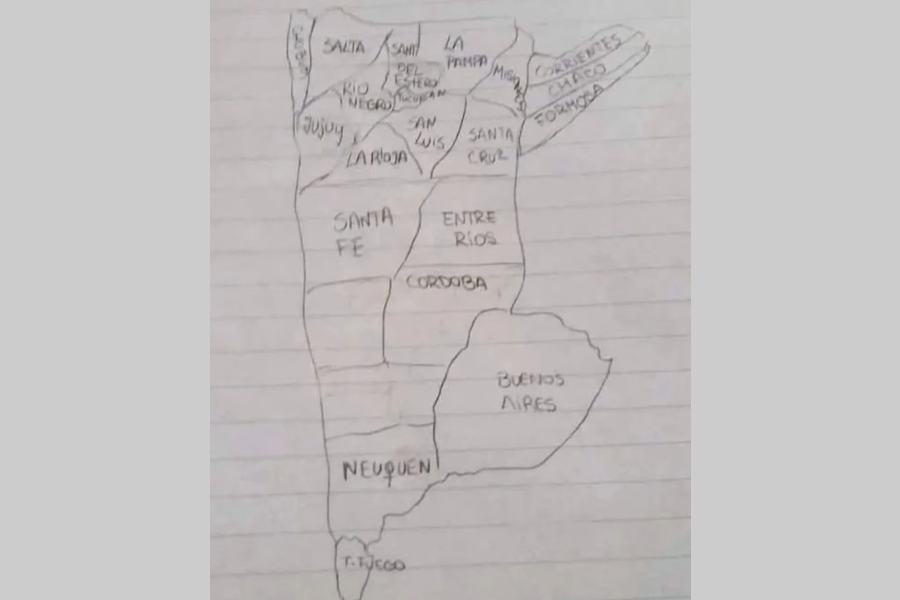 SALTA
SANT
DEL
ESTERO
TUCUMAN
LA
PAMPA
MIS
CORRIENTES
CHACO
FORMOSA
RIO
NEGRO
JUJUY
LA RIOJA
SAN
LUIS
SANTA
CRUZ
SANTA
FE
ENTRE
RÍOS
CORDOBA
BUENOS
AIRES
NEUQUEN
T-FUEGO